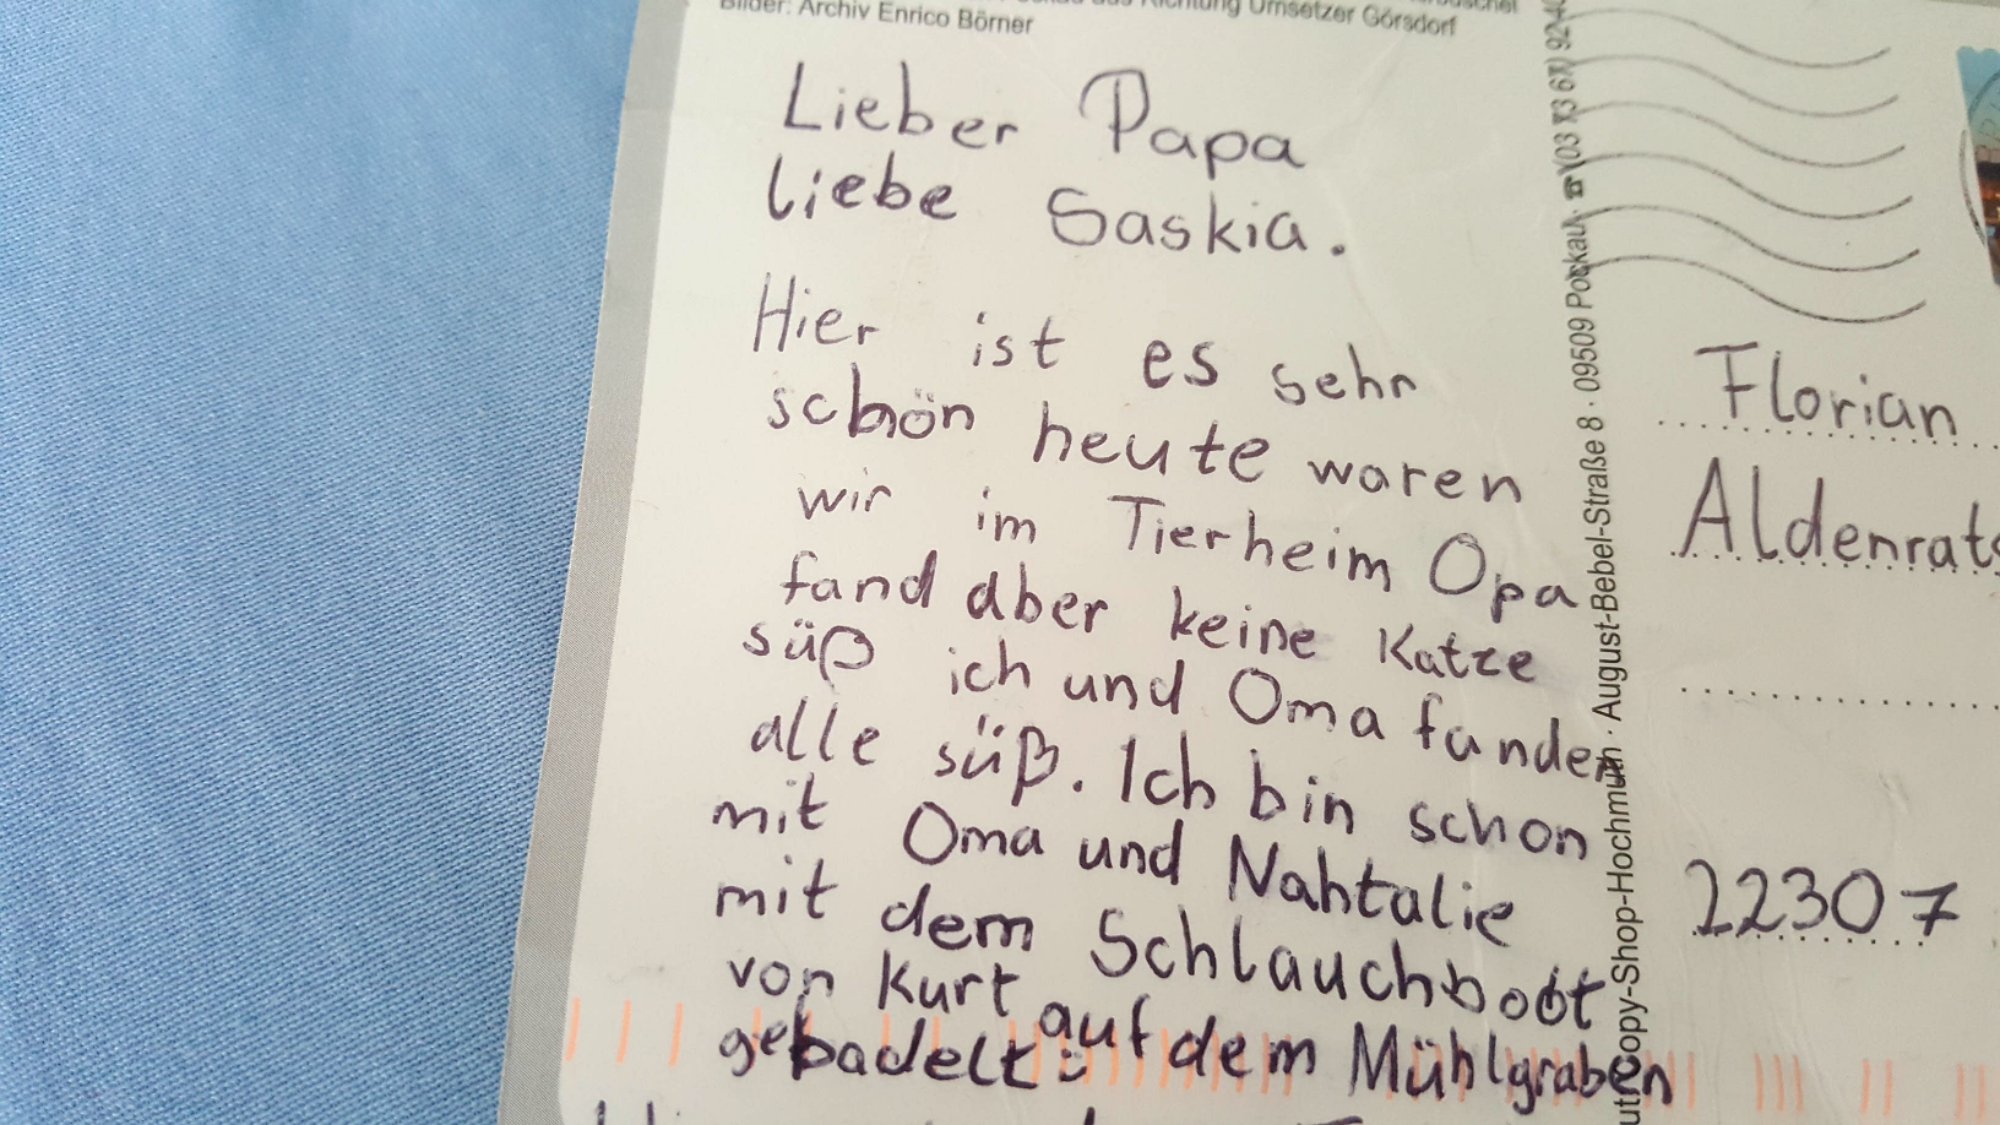 Bilder: Archiv Enrico Börner
Richtung Umsetzer Görsdorf
Lieber Papa
liebe Saskia.
Hier ist es sehr
schön heute waren
wir im Tierheim Opa
fand aber keine Katze
süß ich und Oma fanden
alle süß. Ich bin schon
mit Oma und Nahtalie
mit dem Schlauchboot
von Kurt auf dem Mühlgraben
gepadelt
copy-Shop-Hochmuth · August-Bebel-Straße 8 · 09509 Pockau · ☎ (03 73 67)
Florian
Aldenrat
22307